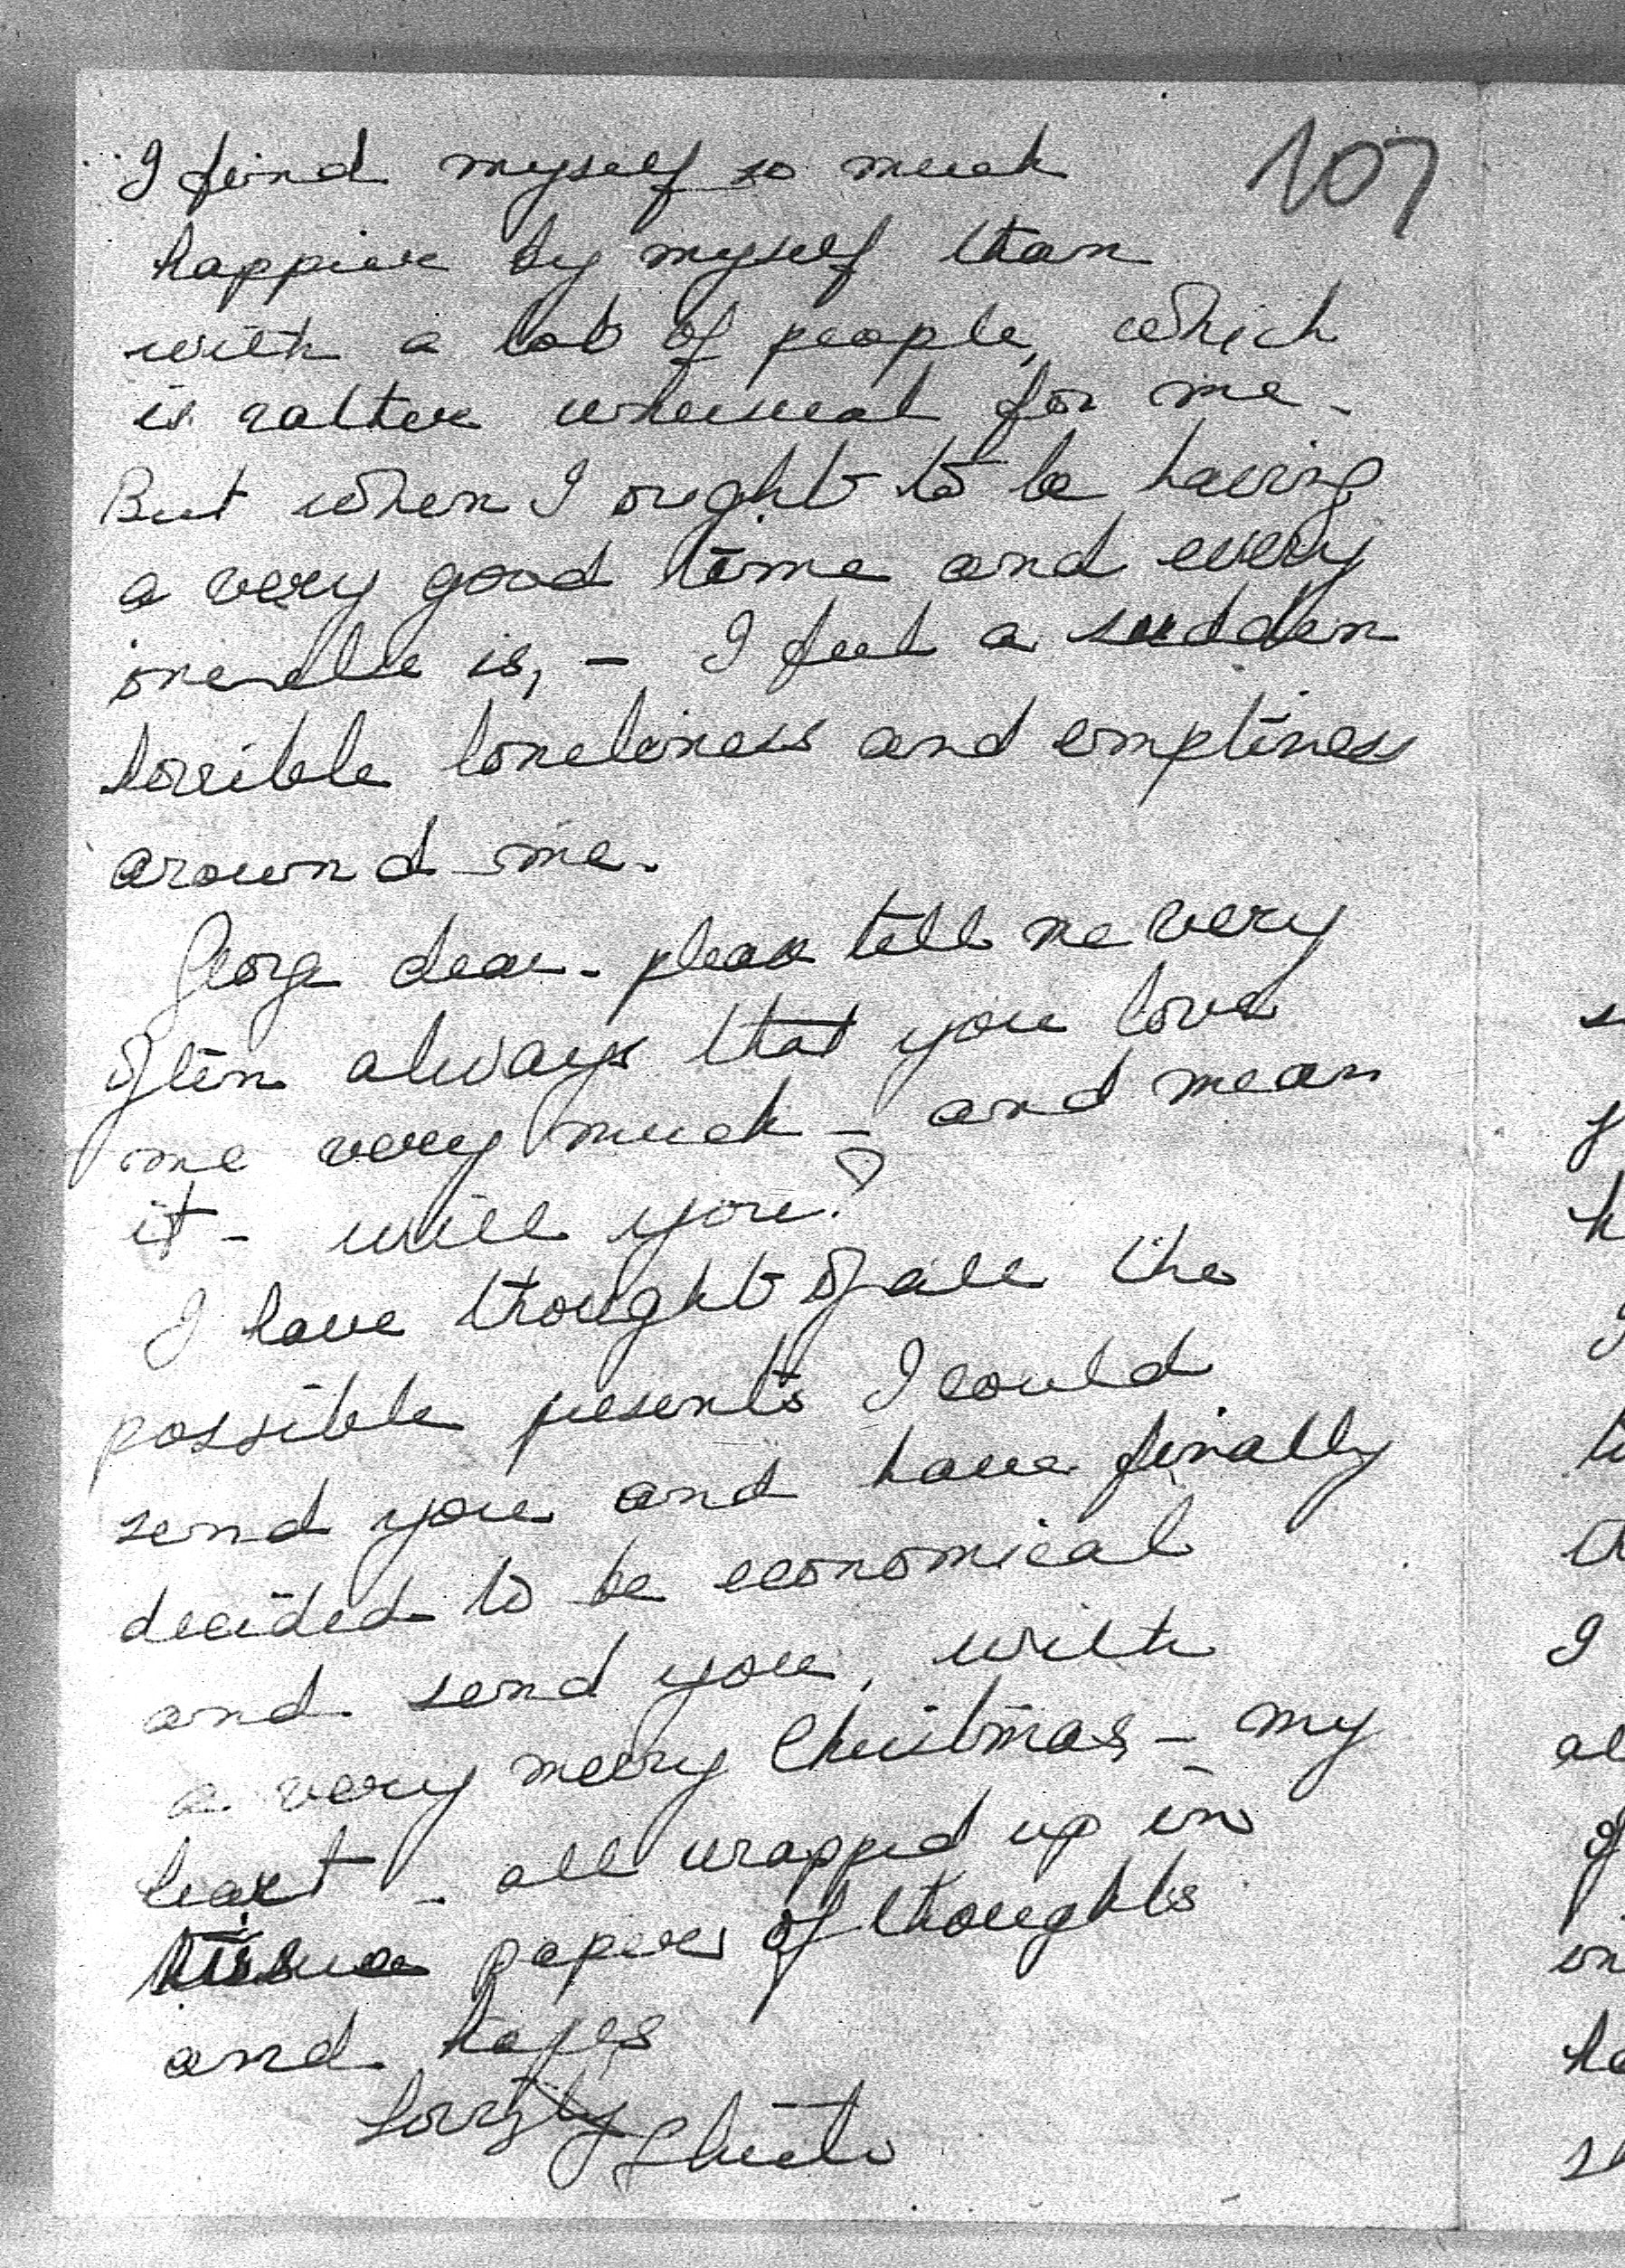 107
I find myself so much
happier by myself than
with a lot of people, which
is rather unusual for me -
But when I ought to be having
a very good time and every
one else is, - I feel a sudden
horrible loneliness and emptiness
around me.
George dear - please tell me very
often always that you love
me very much - and mean
it - will you?
I have thought of all the
possible presents I could
send you and have finally
decided to be economical
and send you, with
a very merry Christmas - my
heart - all wrapped up in
tissue papers of thoughts
and hopes